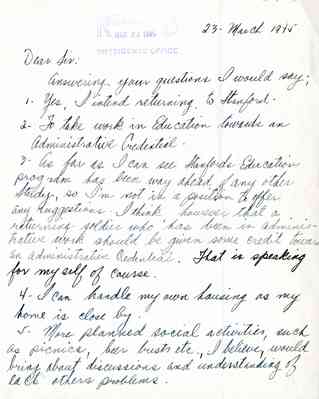 MAR 28 1945
PRESIDENTS OFFICE
23 - March 1945
Dear Sir:
Answering your questions I would say;
1 - Yes, I intend returning to Stanford.
2 - To take work in Education towards an
Administrative Credential.
3 - As far as I can see Stanfords Education
program has been way ahead of any other
study, so I'm not in a position to offer
any suggestions. I think, however that a
returning soldier who has been in adminis-
trative work should be given some credit towards
an administrative Credential. That is speaking
for myself of course.
4 - I can handle my own housing as my
home is close by.
5 - More planned social activities, such
as picnics, beer busts etc., I believe, would
bring about discussions and understanding of
each others problems.